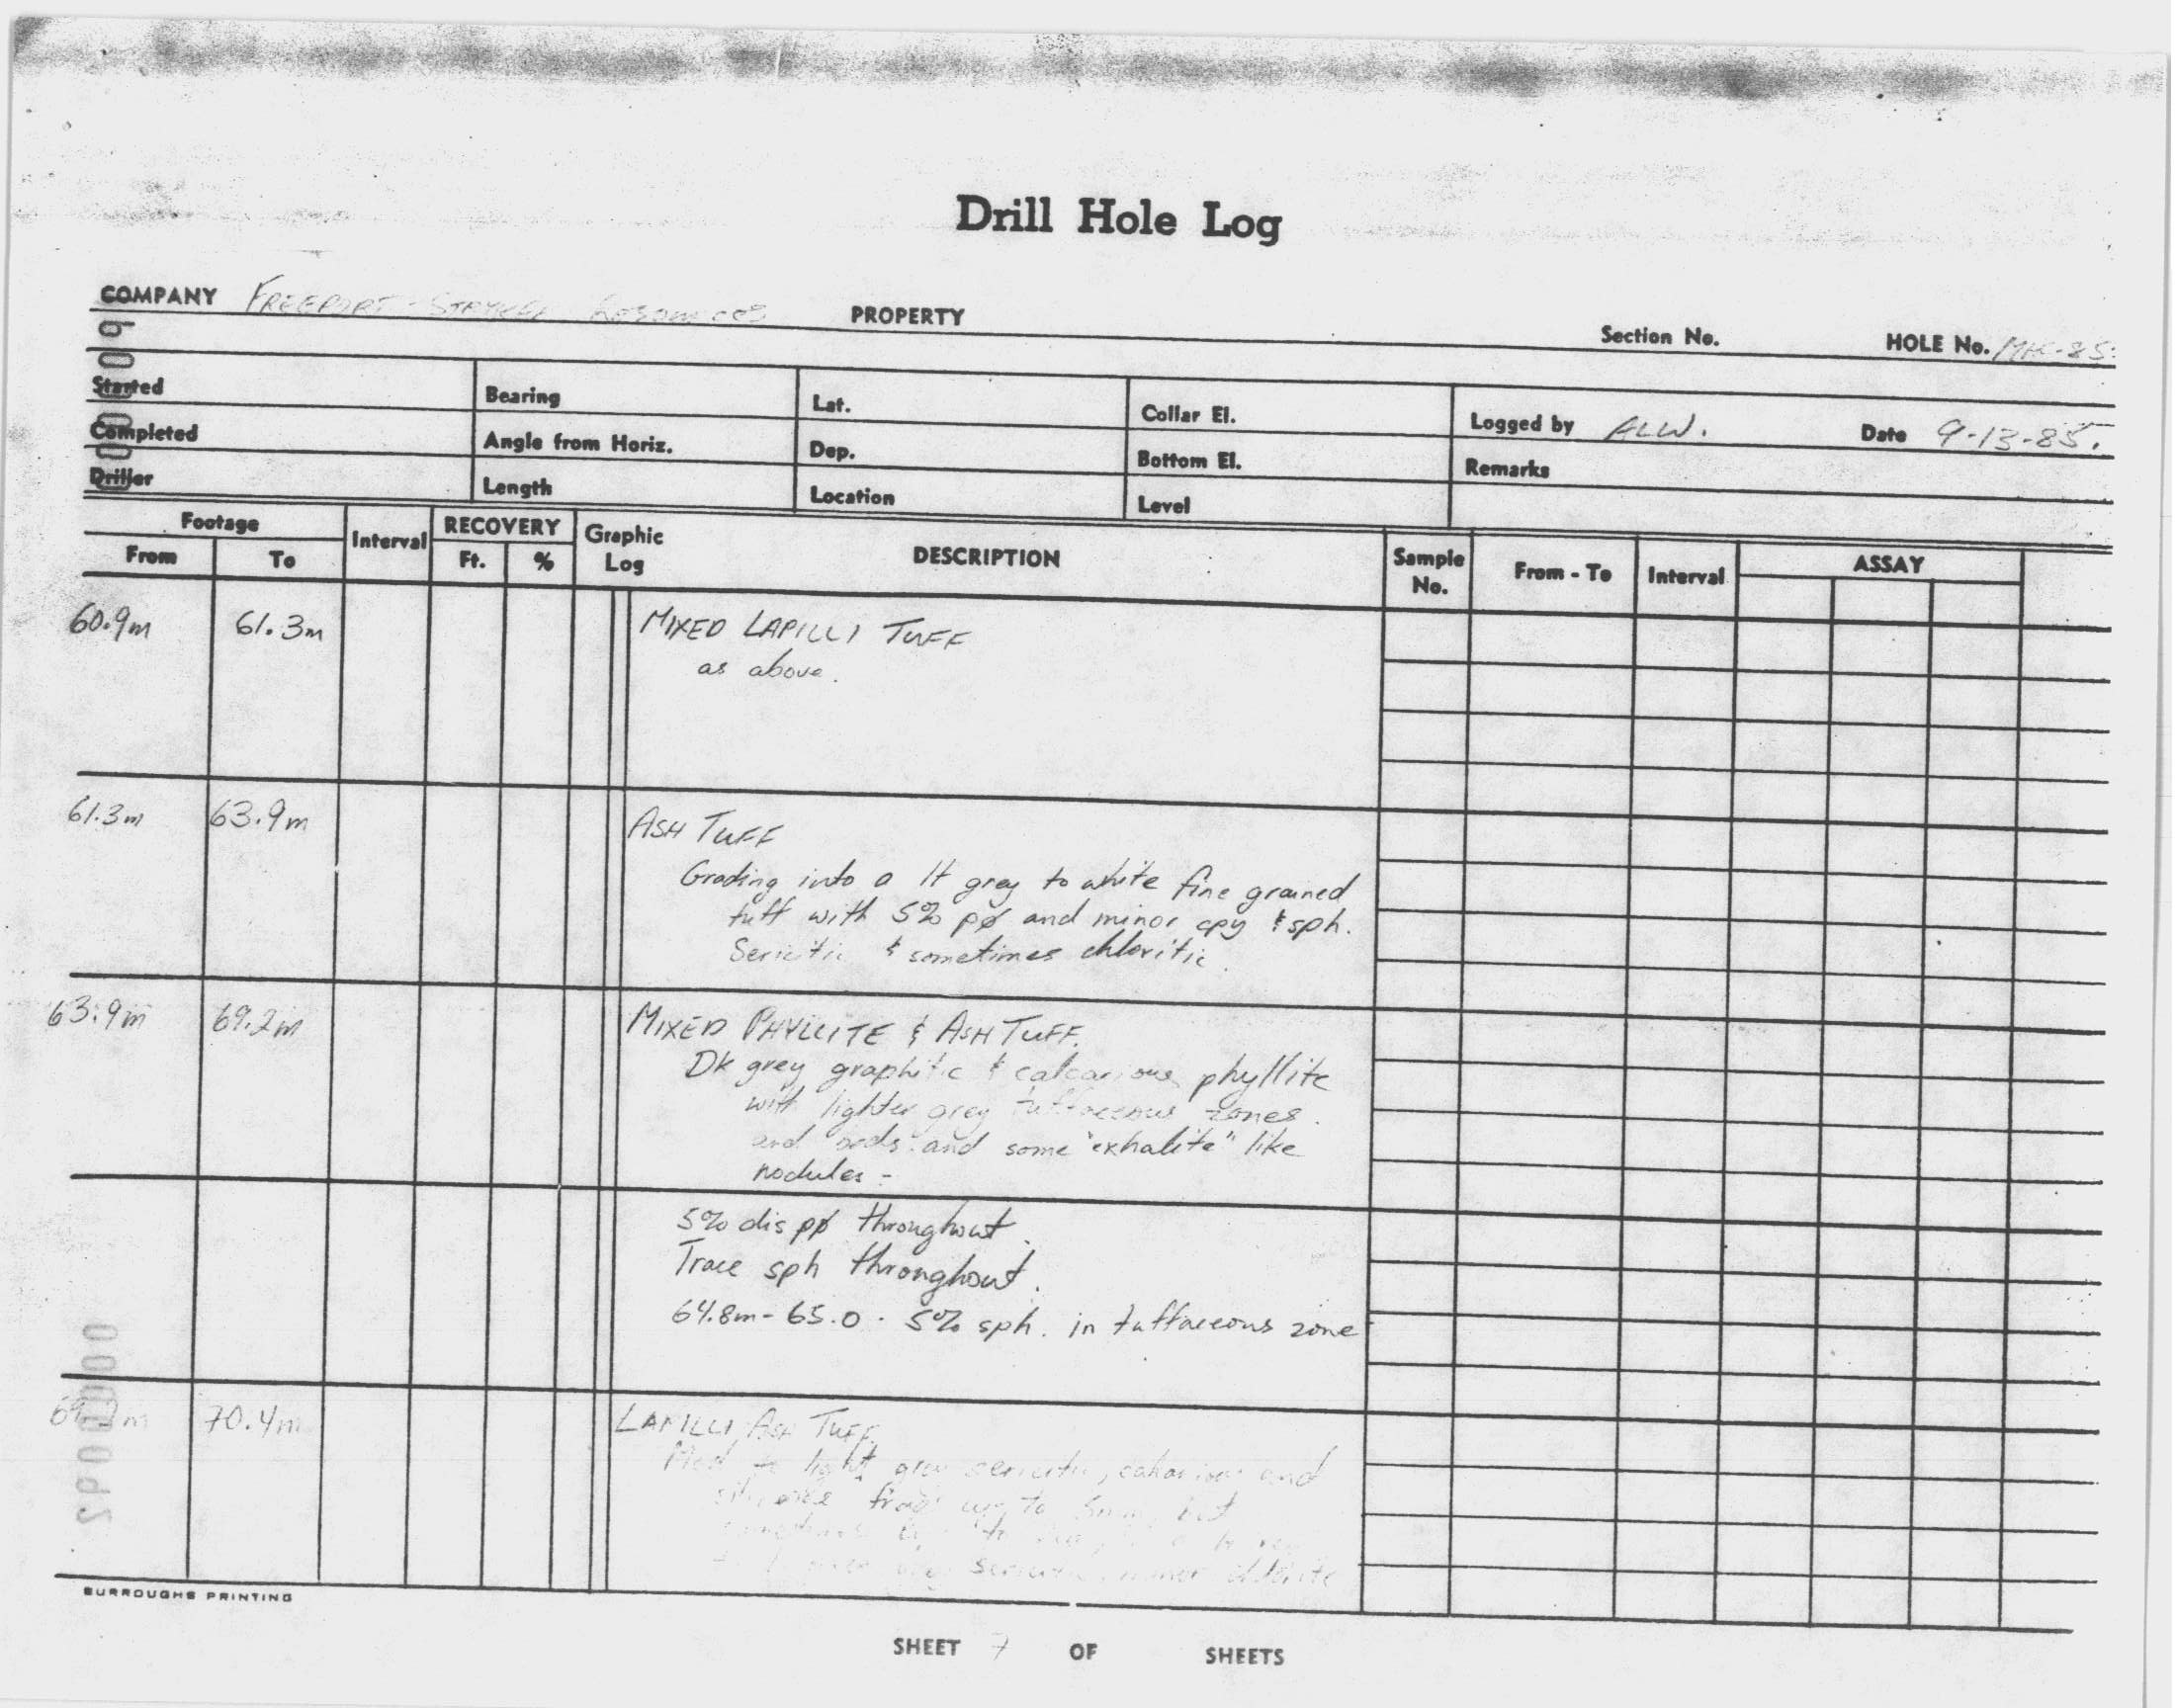 Drill Hole Log
COMPANY FREEPORT - STRYKER RESOURCES PROPERTY Section No. HOLE No. MHC-85-
Started Bearing Lat. Collar El. Logged by ALW. Date 9-13-85.
Completed Angle from Horiz. Dep. Bottom El. Remarks
Driller Length Location Level
Footage Interval RECOVERY Graphic Log DESCRIPTION Sample No. From - To Interval ASSAY
From To Ft. %
60.9m 61.3m MIXED LAPILLI TUFF
as above.
61.3m 63.9m ASH TUFF
Grading into a lt grey to white fine grained
tuff with 5% pø and minor cpy & sph.
Sericitic & sometimes chloritic.
63.9m 69.2m MIXED PHYLLITE & ASH TUFF.
Dk grey graphitic & calcarious phyllite
with lighter grey tuffaceous zones.
and beds. and some "exhalite" like
nodules -
5% dis pø throughout.
Trace sph throughout.
64.8m - 65.0 . 5% sph. in tuffaceous zone
69.2m 70.4m LAPILLI ASH TUFF.
Med to light grey sericitic, calcarious and
frag up to 5mm but
sericitic minor chlorite
BURROUGHS PRINTING
SHEET 7 OF SHEETS